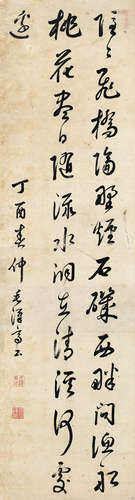 隱〻飛橋隔野煙石磯西畔問漁船
桃花盡日隨流水洞在清溪何處
邊
丁酉春仲